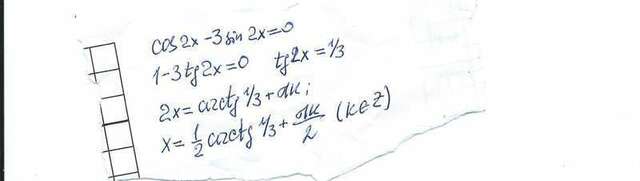 cos2x-3sin2x=0
1-3tg2x=0 tg2x=1/3
2x=arctg 1/3+πk;
x=1/2 arctg 1/3+πk/2 (k∈Z)